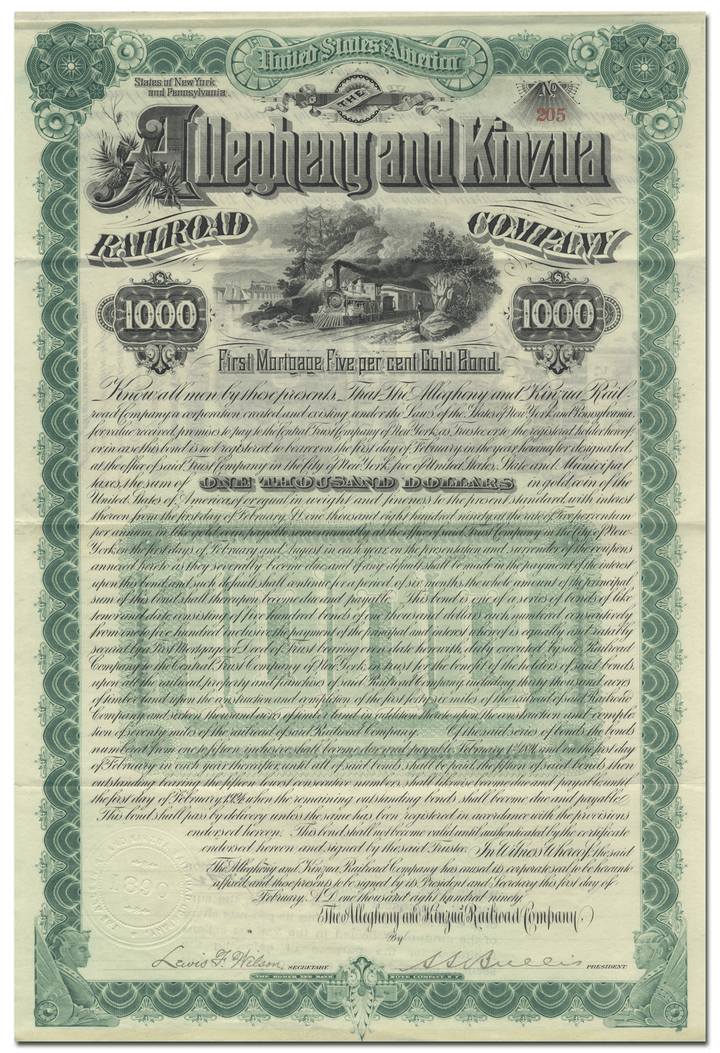 United States America
States of New York
and Pennsylvania.
No
205
THE
Allegheny and Kinzua
RAILROAD COMPANY
1000 1000
First Mortgage Five per cent Gold Bond.
Know all men by these presents, That The Allegheny and Kinzua Rail
road Company a corporation created and existing under the Laws of the States of New York and Pennsylvania,
for value received, promises to pay to the Central Trust Company of New York, as Trustee or to the registered holder hereof
or in case this bond is not registered to bearer on the first day of February, in the year hereinafter designated,
at the office of said Trust Company in the City of New York, free of United States, State and Municipal
taxes, the sum of ONE THOUSAND DOLLARS in gold coin of the
United States of America, of or equal in weight and fineness to the present standard, with interest
thereon from the first day of February, A.D. one thousand eight hundred ninety at the rate of Five per centum
per annum in like gold coin payable semi annually at the office of said Trust Company in the City of New
York on the first days of February and August in each year, on the presentation and surrender of the coupons
annexed hereto as they severally become due and if any default shall be made in the payment of the interest
upon this bond, and such default shall continue for a period of six months the whole amount of the principal
sum of this bond shall thereupon become due and payable. This bond is one of a series of bonds of like
tenor and date consisting of five hundred bonds of one thousand dollars each numbered consecutively
from one to five hundred inclusive the payment of the principal and interest whereof is equally and ratably
secured by a First Mortgage or Deed of Trust bearing even date herewith, duly executed by said Railroad
Company to the Central Trust Company of New York, in trust for the benefit of the holders of said bonds,
upon all the railroad property and franchises of said Railroad Company including thirty thousand acres
of timber land upon the construction and completion of the first forty six miles of the railroad of said Railroad
Company and sixteen thousand acres of timber land in addition thereto upon the construction and comple
tion of seventy miles of the railroad of said Railroad Company. Of the said series of bonds the bonds
numbered from one to fifteen inclusive shall become due and payable February 1st 1891, and on the first day
of February in each year thereafter, until all of said bonds shall be paid, the fifteen of said bonds then
outstanding bearing the fifteen lowest consecutive numbers shall likewise become due and payable, until
the first day of February, when the remaining outstanding bonds shall become due and payable.
This bond shall pass by delivery unless the same has been registered in accordance with the provisions
endorsed hereon. This bond shall not become valid until authenticated by the certificate
endorsed hereon and signed by the said Trustee. In Witness Whereof, the said
The Allegheny and Kinzua Railroad Company has caused its corporate seal to be hereunto
affixed, and these presents to be signed by its President and Secretary this first day of
February, A.D. one thousand eight hundred ninety.
The Allegheny and Kinzua Railroad Company
By
1890
Lewis F. Wilson, SECRETARY S S Bullis PRESIDENT
THE HOMER LEE BANK NOTE COMPANY N.Y.